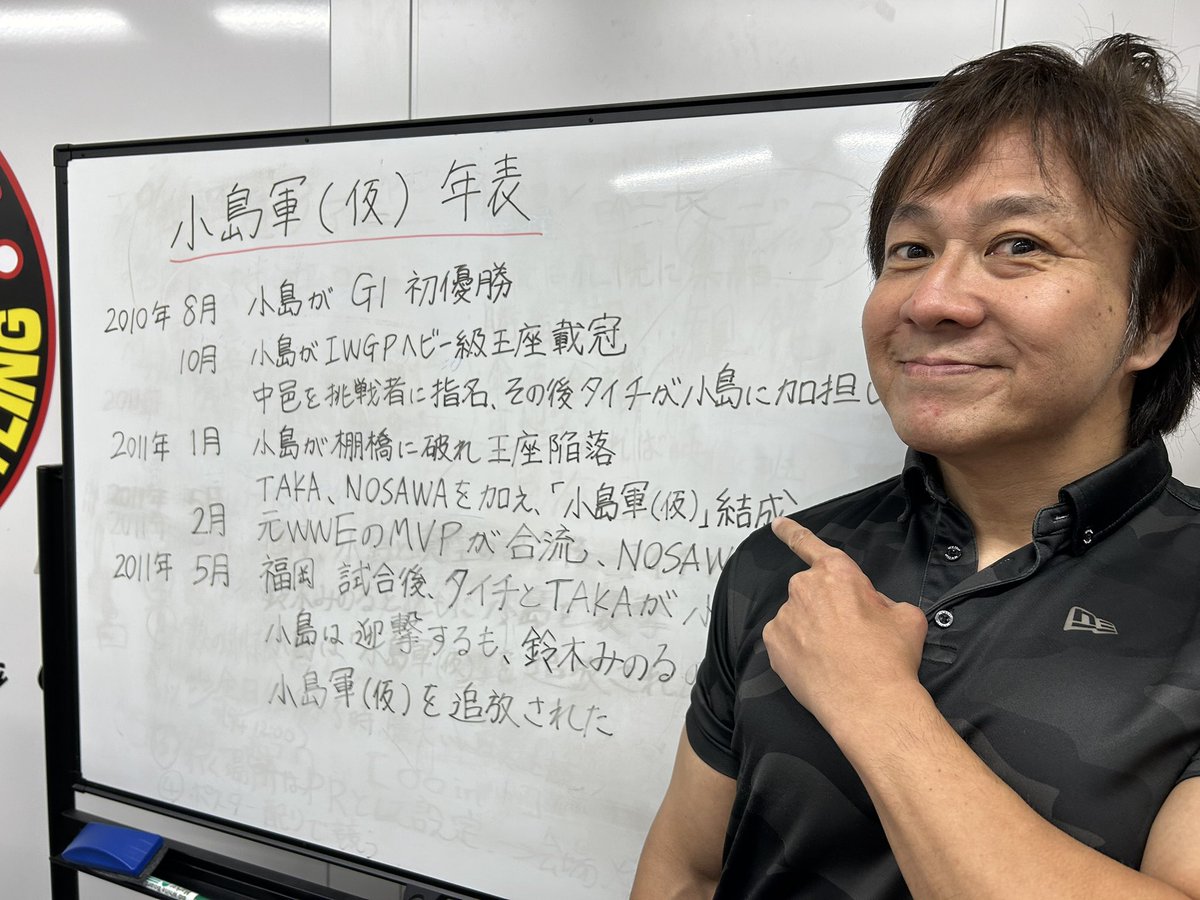 小島軍(仮) 年表
2010年 8月 小島が G1 初優勝
10月 小島がIWGPヘビー級王座載冠
中邑を挑戦者に指名、その後タイチが小島に加担し
2011年 1月 小島が棚橋に破れ王座陥落
TAKA、NOSAWAを加え、「小島軍(仮)」結成
2月 元WWEのMVPが合流、NOSAWA
2011年 5月 福岡 試合後、タイチとTAKAが小
小島は迎撃するも、鈴木みのる
小島軍(仮)を追放された
TLING